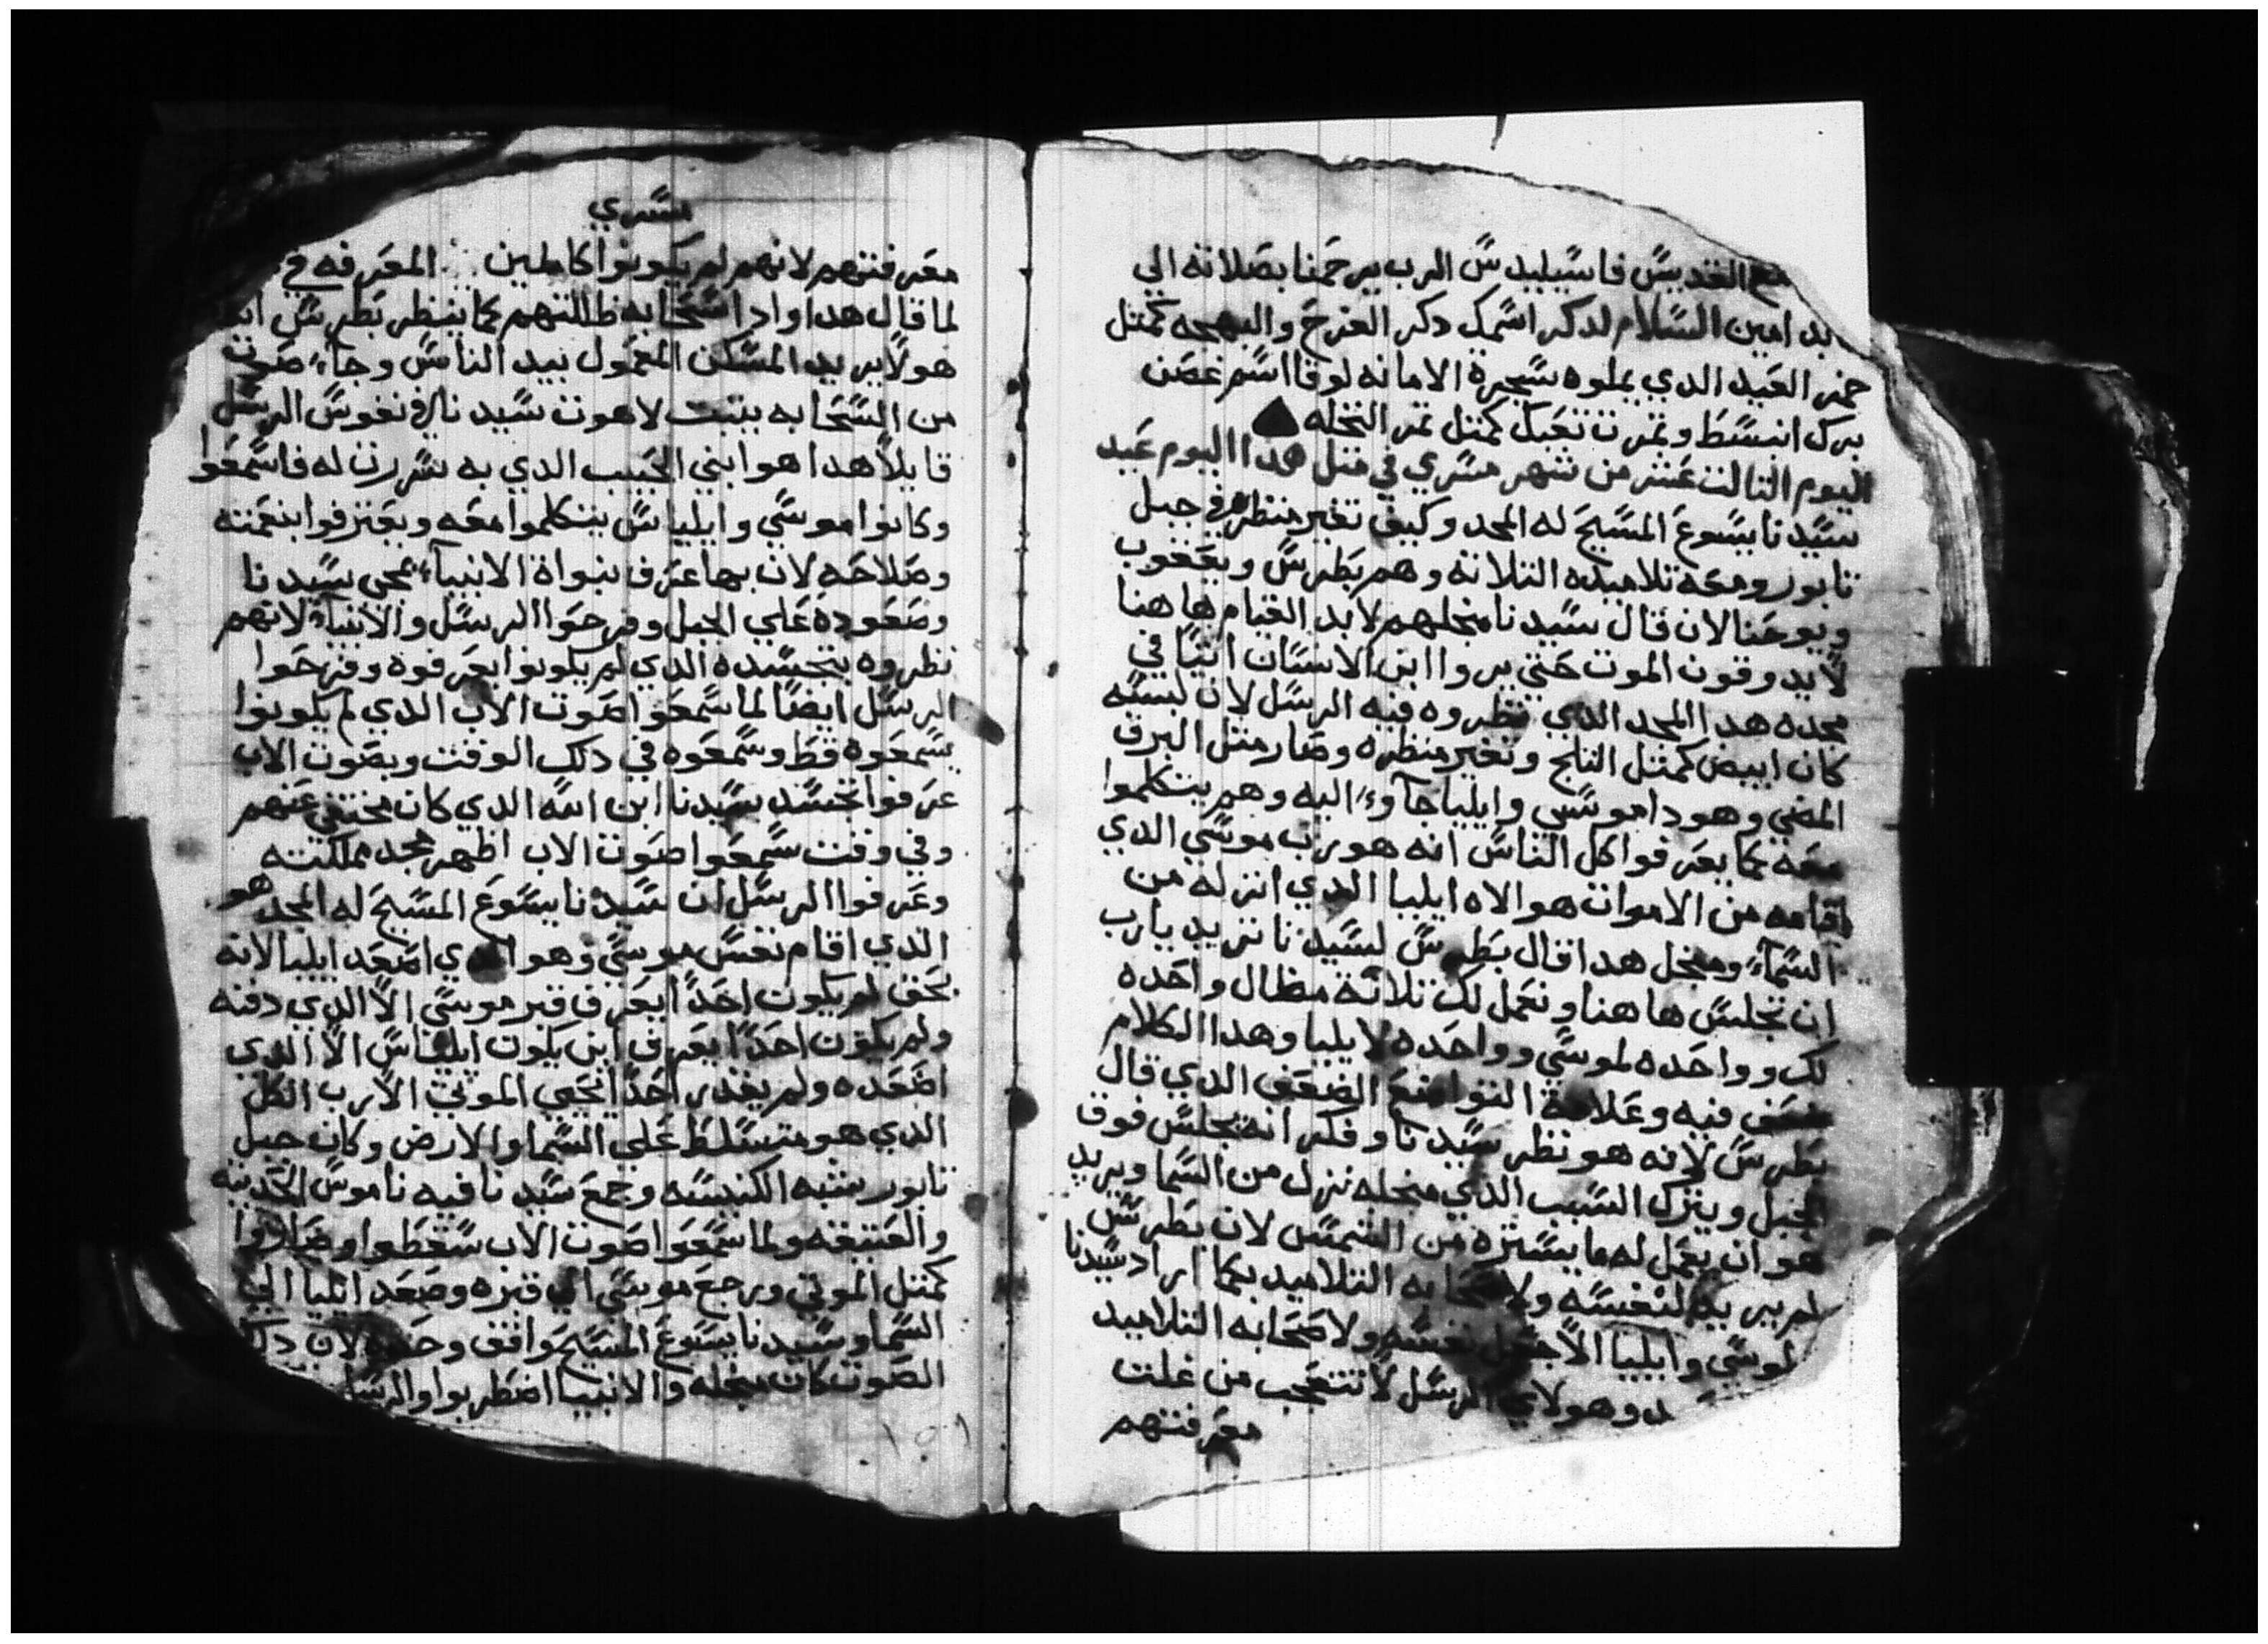 مع القديس فاسيليدس الرب يرحمنا بصلاته الي
ابد امين السلام لدكر اسمك دكر الفرح والبهجه كمثل
خمر العيد الدي يملوه شجرة الامانه لوقا اسم غصن
برك انبسط وتمرت تعبك كمتل تمر النخله
اليوم التالت عشر من شهر مسري في متل هدا اليوم عيد
سيدنا يسوع المسيح له المجد وكيف تغير منظره في جبل
تابور ومعه تلاميده التلاته وهم بطرس ويعقوب
ويوحنا لان قال سيدنا منجلهم لابد القيام هاهنا
لا يدوقون الموت حتي يروا ابن الانسان اتيا في
مجده هدا المجد الدي نظروه فيه الرسل لان لبسه
كان ابيض كمتل التلج وتغير منظره وصار متل البرق
المضي وهودا موسي وايليا جآوءا اليه وهم يتكلموا
معه كما يعرفوا كل الناس انه هو رب موسي الدي
اقامه من الاموات هو الاه ايليا الدي انزله من
السمآء ومنجل هدا قال بطرس لسيدنا تريد يارب
ان نجلس هاهنا ونعمل لك تلاتة مظال واحده
لك وواحده لموسي وواحده لايليا وهدا الكلام
ضعف فيه وعلامة التواضع الضعف الدي قال
بطرس لانه هو نظر سيدنا وفكر انه يجلس فوق
الجبل ويترك السبب الدي منجله نزل من السما ويريد
هو ان يعمل له ما يستره من الشمس لان بطرس
لم يريد لنفسه ولاصحابه التلاميد بكما اراد سيدنا
لموسي وايليا الا جعل نفسه ولاصحابه التلاميد
وهولاي الرسل لا تتعجب من غلت
معرفتهم
مسري
معرفتهم لانهم لم يكونوا كاملين المعرفه في
لما قال هدا وادا سحابه ظللتهم كما ينظر بطرس
هو لا يريد المسكن المعمول بيد الناس وجآء صوت
من السحابه يتبت لاهوت سيدنا في نفوس الرسل
قايلا هدا هو ابني الحبيب الدي به سررت له فاسمعوا
وكانوا موسي وايلياس يتكلموا معه ويعترفوا بنعمته
وصلاحه لان بها عرف نبواة الانبيآء مجي سيدنا
وصعوده علي الجبل وفرحوا الرسل والانبيآء لانهم
نظروه بتجسده الدي لم يكونوا يعرفوه وفرحوا
الرسل ايضا لما سمعوا صوت الاب الدي لم يكونوا
يسمعوه قط وسمعوه في دلك الوقت وبصوت الاب
عرفوا تجسد سيدنا ابن الله الدي كان مختفي عنهم
وفي وقت سمعوا صوت الاب اظهر مجد مملكته
وعرفوا الرسل ان سيدنا يسوع المسيح له المجد هو
الدي اقام نفس موسي وهو الدي اصعد ايليا لانه
بحق لم يكون احدا يعرف قبر موسي الا الدي دفنه
ولم يكون احدا يعرف اين يكون ايلياس الا الدي
اصعده ولم يقدر احدا يحيي الموتي الا رب الكل
الدي هو متسلط علي السما والارض وكان جبل
تابور شبه الكنيسه وجمع سيدنا فيه ناموس الحديته
والعتيقه ولما سمعوا صوت الاب سقطوا وصاروا
كمتل الموتي ورجع موسي الي قبره وصعد ايليا الي
السما وسيدنا يسوع المسيح واقف وحده لان دلك
الصوت كان منجله والانبيا اضطربوا والرسل